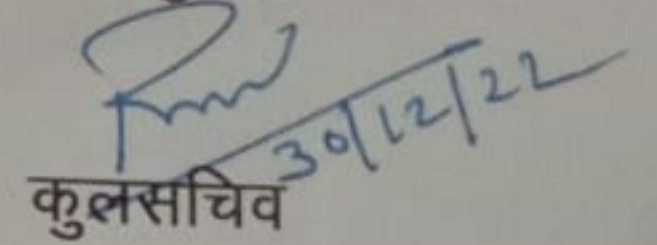 30/12/22
कुलसचिव